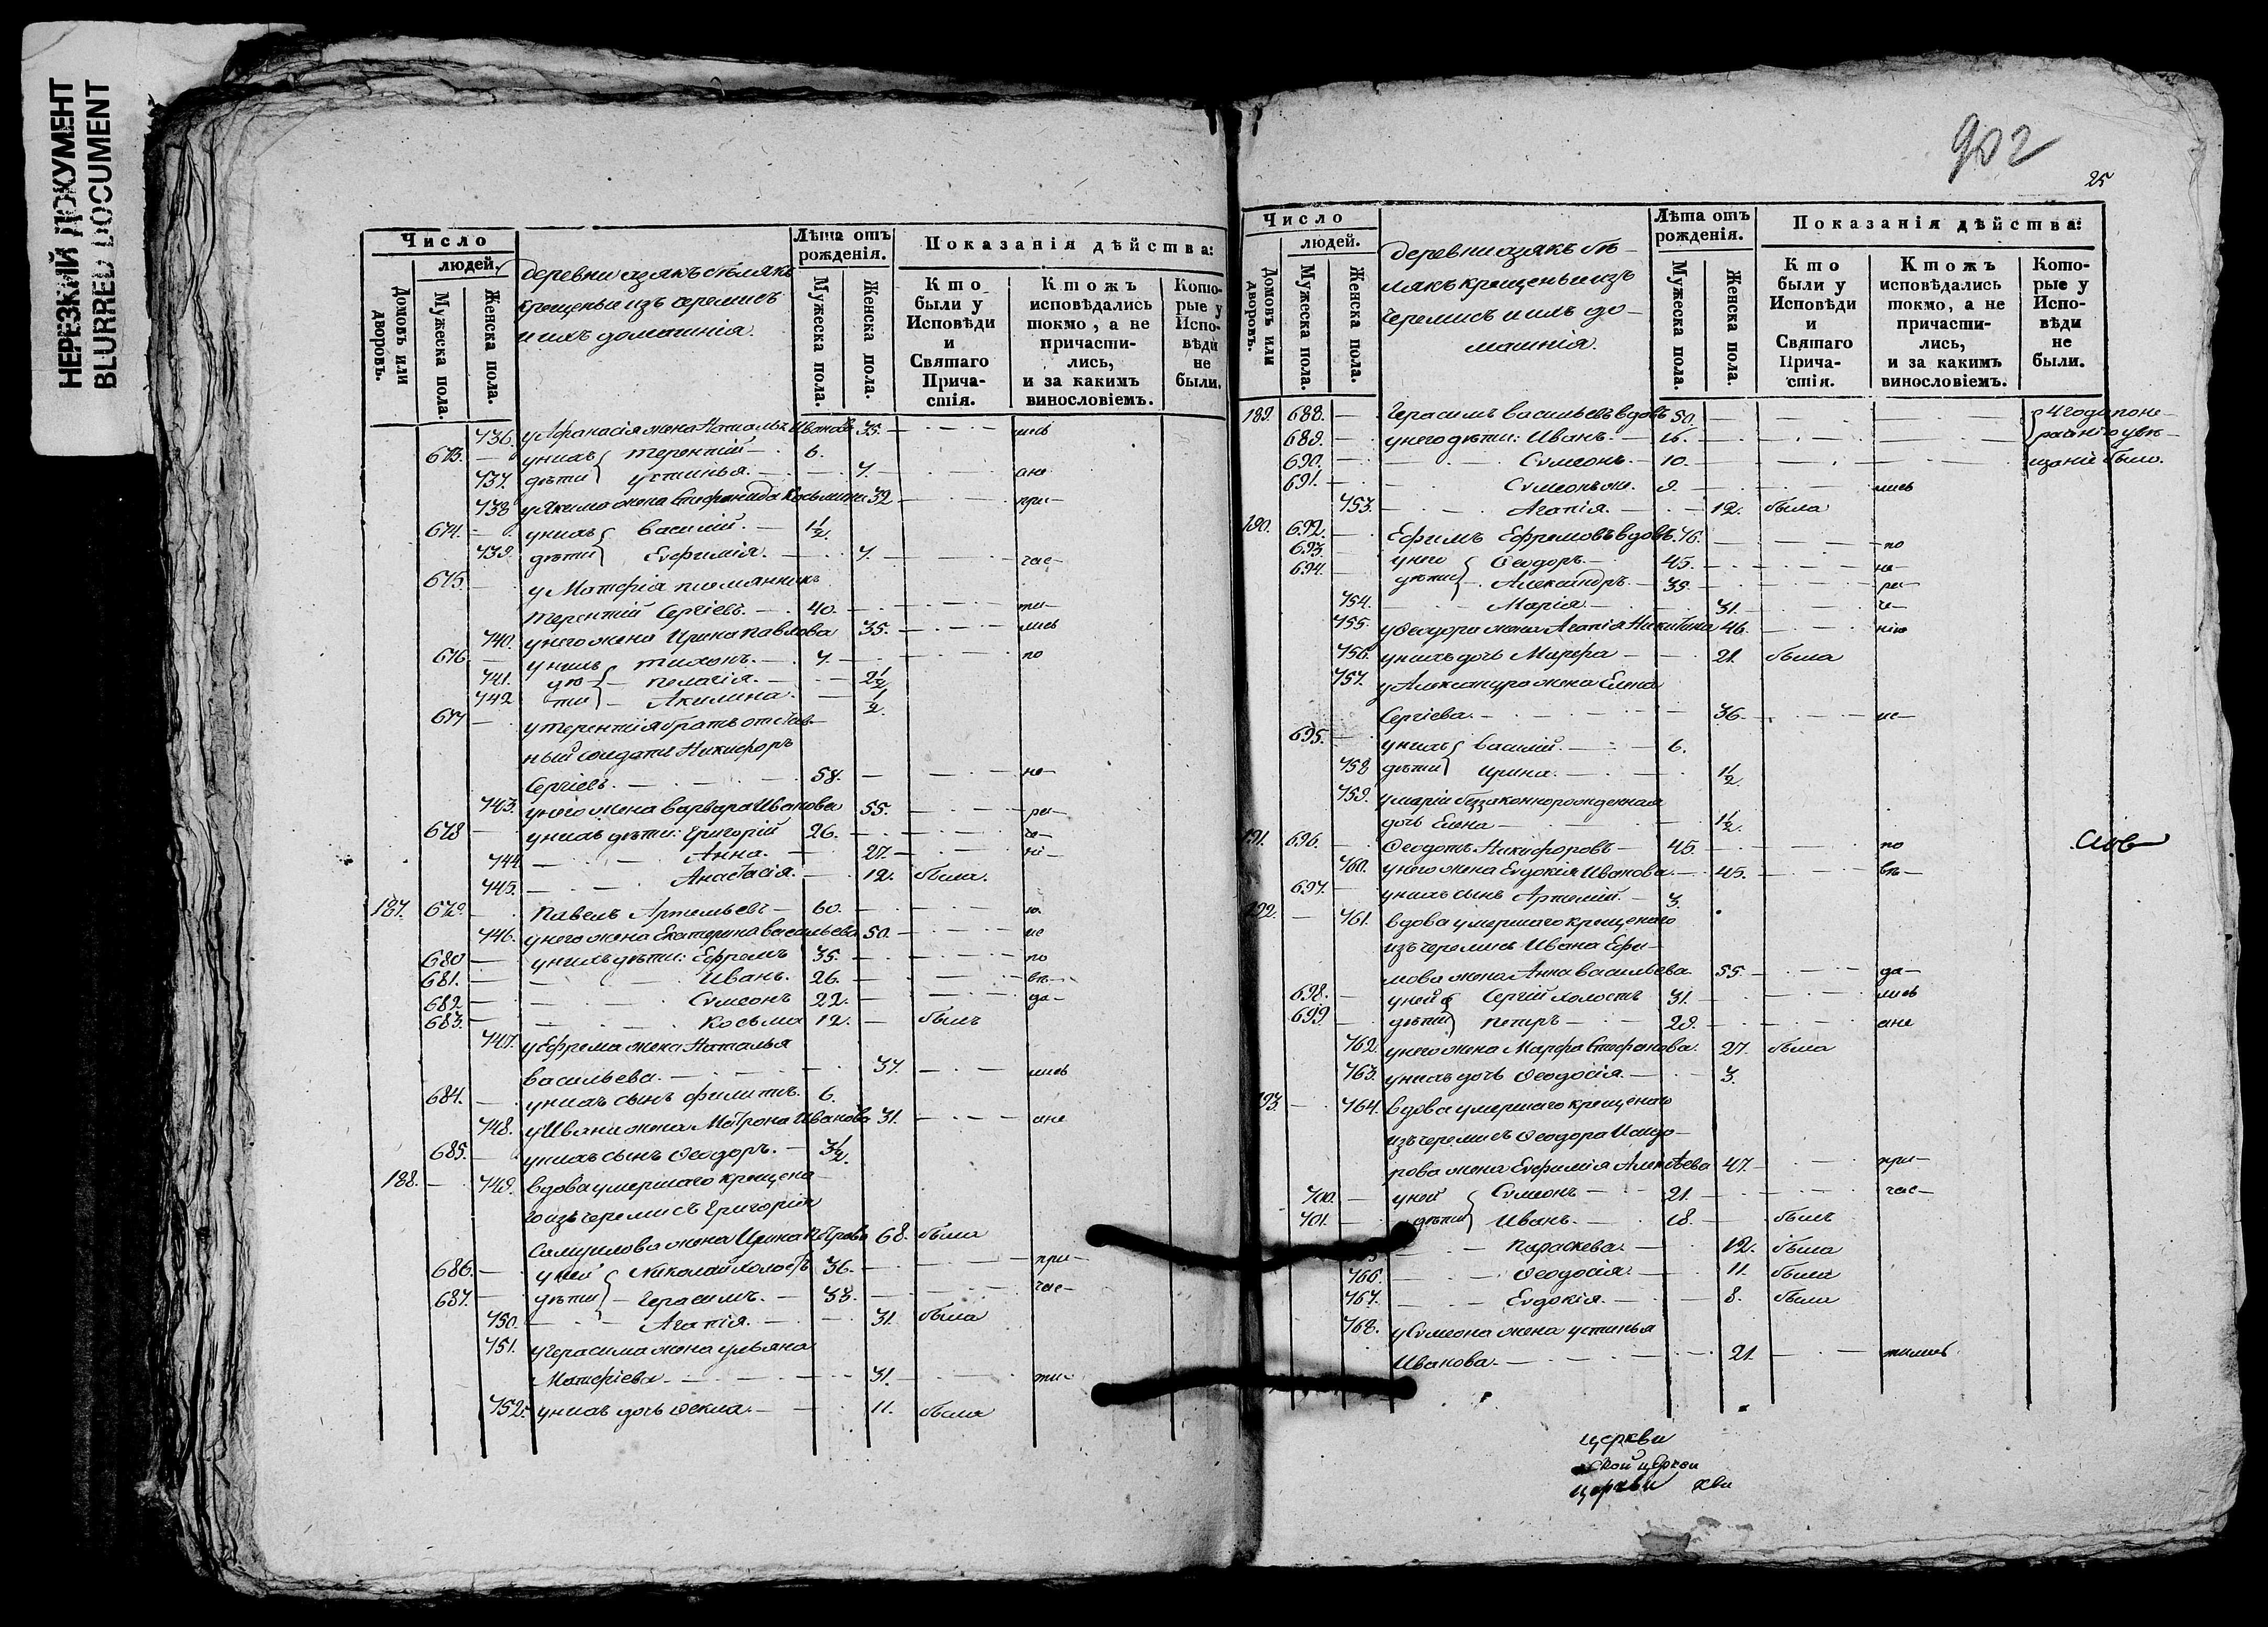 НЕРЕЗКИЙ ДОКУМЕНТ
BLURRED DOCUMENT
Число
людей.
Домовъ или дворовъ.
Мужеска пола.
Женска пола.
деревни азякъ бѣлякъ
крещеныя изъ черемисъ
и ихъ домашнія.
Лѣта отъ рожденія.
Мужеска пола.
Женска пола.
Показанія дѣйства:
Кто были у Исповѣди и Святаго Причастія.
Ктожъ исповѣдались токмо, а не причастились, и за какимъ винословіемъ.
Которые у Исповѣди не были.
736. у Афанасія жена Наталья Иванова 35. лись
673. у нихъ Терентій 6.
737. дѣти Устинья. 7. ане
738 у Якима жена Стефанида Косьмина 32 при-
674. у нихъ Василій. 1½
739. дѣти Евфимія. 7. час-
675. у Матфія племянникъ
Терентій Сергіевъ. 40. ти-
740. у него жена Ирина Павлова 35. лись
676. у нихъ Тихонъ. 7. по
741. дѣ- Пелагія. 2½
742 ти Акилина. ½
677 у Терентія братъ отстав-
ный солдатъ Никифоръ
Сергіевъ. 58. не-
743. у него жена Варвара Иванова 55. ра-
678 у нихъ дѣти: Григорій 26. че-
744 Анна. 27. ні-
745. Анастасія. 12. была.
187. 679. Павелъ Артемьевъ 60. ю.
746. у него жена Екатерина Васильева 50. ис
680 у нихъ дѣти: Ефремъ 35. по
681. Иванъ. 26. вѣ-
682 Симеонъ 22. да-
683. Косьма 12. былъ
747. у Ефрема жена Наталья
Васильева. 37. лись
684. у нихъ сынъ Филиппъ. 6.
748. у Ивана жена Матрона Иванова 31. ане
685. у нихъ сынъ Ѳеодоръ. 3½
188. 749. вдова умершаго крещена-
го изъ черемисъ Григорія
Самуилова жена Ирина Петрова 68. была
686. у ней Николай холостъ 36. при-
687. дѣти Герасимъ. 33. час-
750. Агапія. 31. была
751. у Герасима жена Ульяна
Матфіева 31. ти-
752. у нихъ дочь Ѳекла. 11. была
902
25
Число
людей.
Домовъ или дворовъ.
Мужеска пола.
Женска пола.
деревни азякъ бѣ-
лякъ крещеныя изъ
черемисъ и ихъ до-
машнія.
Лѣта отъ рожденія.
Мужеска пола.
Женска пола.
Показанія дѣйства:
Кто были у Исповѣди и Святаго Причастія.
Ктожъ исповѣдались токмо, а не причастились, и за какимъ винословіемъ.
Которые у Исповѣди не были.
189. 688. Герасимъ Васильевъ вдовъ 50. 4 года по не-
689. у него дѣти: Иванъ. 16. раченію увѣ-
690. Симеонъ. 10. щаніе было.
691. Симеонъ ж. 9. лись
753. Агапія. 12. была
190. 692. Ефимъ Ефремовъ вдовъ. 76.
693. у него Ѳеодоръ. 45. по
694. дѣти Александръ. 35. не-
754. Марія 31. ра-
755. у Ѳеодора жена Агапія Никитина 46. нію
756. у нихъ дочь Марфа 21. была
757. у Александра жена Елена
Сергіева. 36. ис-
695. у нихъ Василій. 6.
758 дѣти Ирина. 1½
759. у Маріи беззаконнорожденная
дочь Елена 1½
191. 696. Ѳеодотъ Никифоровъ 45. по
760. у него жена Евдокія Иванова. 45. вѣ-
697. у нихъ сынъ Артемій. 3.
192. 761. вдова умершаго крещенаго
изъ черемисъ Ивана Ефи-
мова жена Анна Васильева. 55. да-
698. у ней Сергій холостъ 31. лись
699 дѣти Петръ 29. ане
762. у него жена Марфа Стефанова. 27. была
763. у нихъ дочь Ѳеодосія. 3.
193. 764. вдова умершаго крещенаго
изъ черемисъ Ѳеодора Исидо-
рова жена Евфимія Алексѣева 47. при-
700. у ней Симеонъ 21. час-
701. дѣти Иванъ. 18. былъ
Параскева. 12. была
766. Ѳеодосія. 11. была
767. Евдокія. 8. была
768. у Симеона жена Устинья
Иванова. 21. тились
церкви
ской церкви
церкви кви